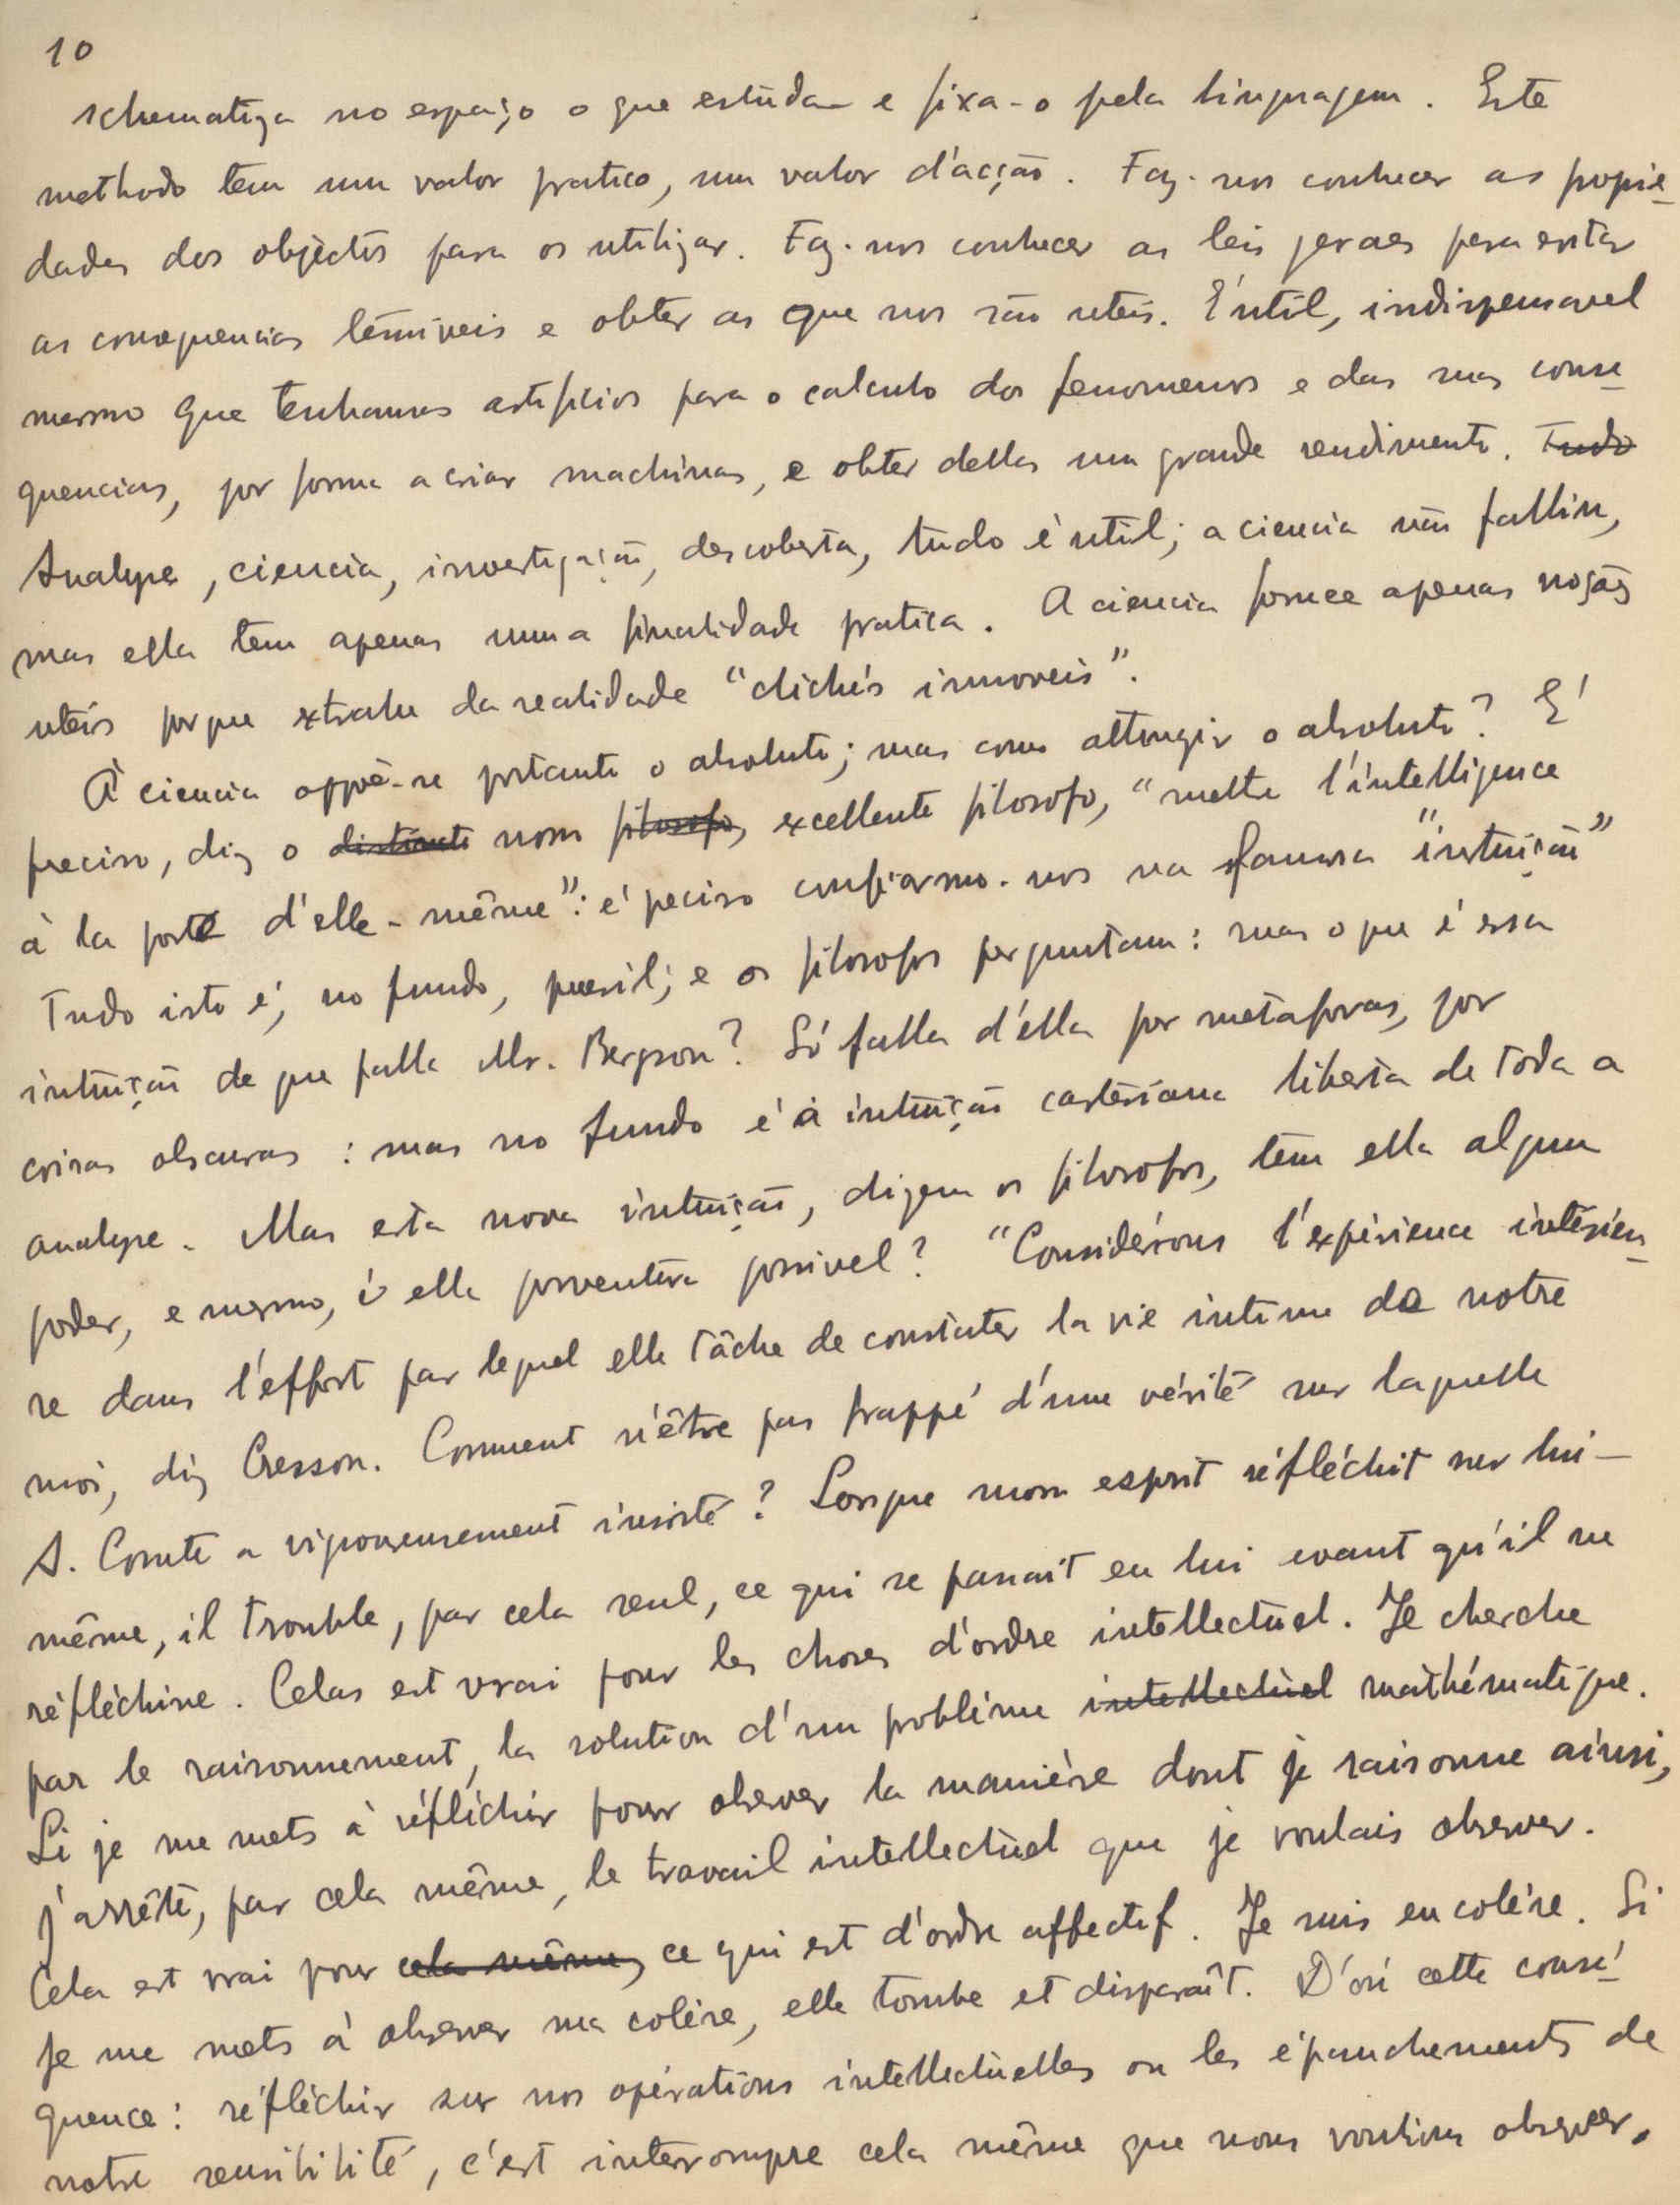 10
schematiza no espaço o que estuda e fixa-o pela linguagem. Este
methodo tem um valor pratico, um valor d'acção. Faz-nos conhecer as proprie-
dades dos objectos para os utilizar. Faz-nos conhecer as leis geraes para evitar
as consequencias temiveis e obter as que nos são uteis. É util, indispensavel
mesmo que tenhamos artificios para o calculo dos fenomenos e das suas conse-
quencias, por forma a criar machinas, e obter dellas um grande rendimento. Tudo
Analyse, ciencia, investigação, descoberta, tudo é util; a ciencia não falliu,
mas ella tem apenas uma finalidade pratica. A ciencia fornece apenas noções
uteis porque extrahe da realidade "clichés immoveis".
À ciencia oppõe-se portanto o absoluto; mas como attingir o absoluto? É
preciso, diz o distincto nosso filosofo, excellente filosofo, "mettre l'intelligence
à la porte d'elle-même": é preciso confiarmo-nos na famosa "intuição"
Tudo isto é, no fundo, pueril; e os filosofos perguntam: mas o que é essa
intuição de que falla Mr. Bergson? Só falla d'ella por metaforas, por
coisas obscuras: mas no fundo é a intuição cartesiana liberta de toda a
analyse. Mas esta nova intuição, dizem os filosofos, tem ella algum
poder, e mesmo, é ella porventura possivel? "Considérons l'expérience intérieu-
re dans l'effort par lequel elle tâche de constater la vie intime de notre
moi, diz Cresson. Comment n'être pas frappé d'une vérité sur laquelle
A. Comte a vigoureusement insisté? Lorsque mon esprit réfléchit sur lui-
même, il trouble, par cela seul, ce qui se passait en lui avant qu'il ne
réfléchisse. Celas est vrai pour les choses d'ordre intellectuel. Je cherche
par le raisonnement, la solution d'un problème intellectuel mathématique.
Si je me mets à réfléchir pour observer la manière dont je raisonne ainsi,
j'arrête, par cela même, le travail intellectuel que je voulais observer.
Cela est vrai pour cela même, ce qui est d'ordre affectif. Je suis en colère. Si
je me mets à observer ma colère, elle tombe et disparaît. D'où cette consé-
quence: réfléchir sur nos opérations intellectuelles ou les épanchements de
notre sensibilité, c'est interrompre cela même que nous voulions observer.